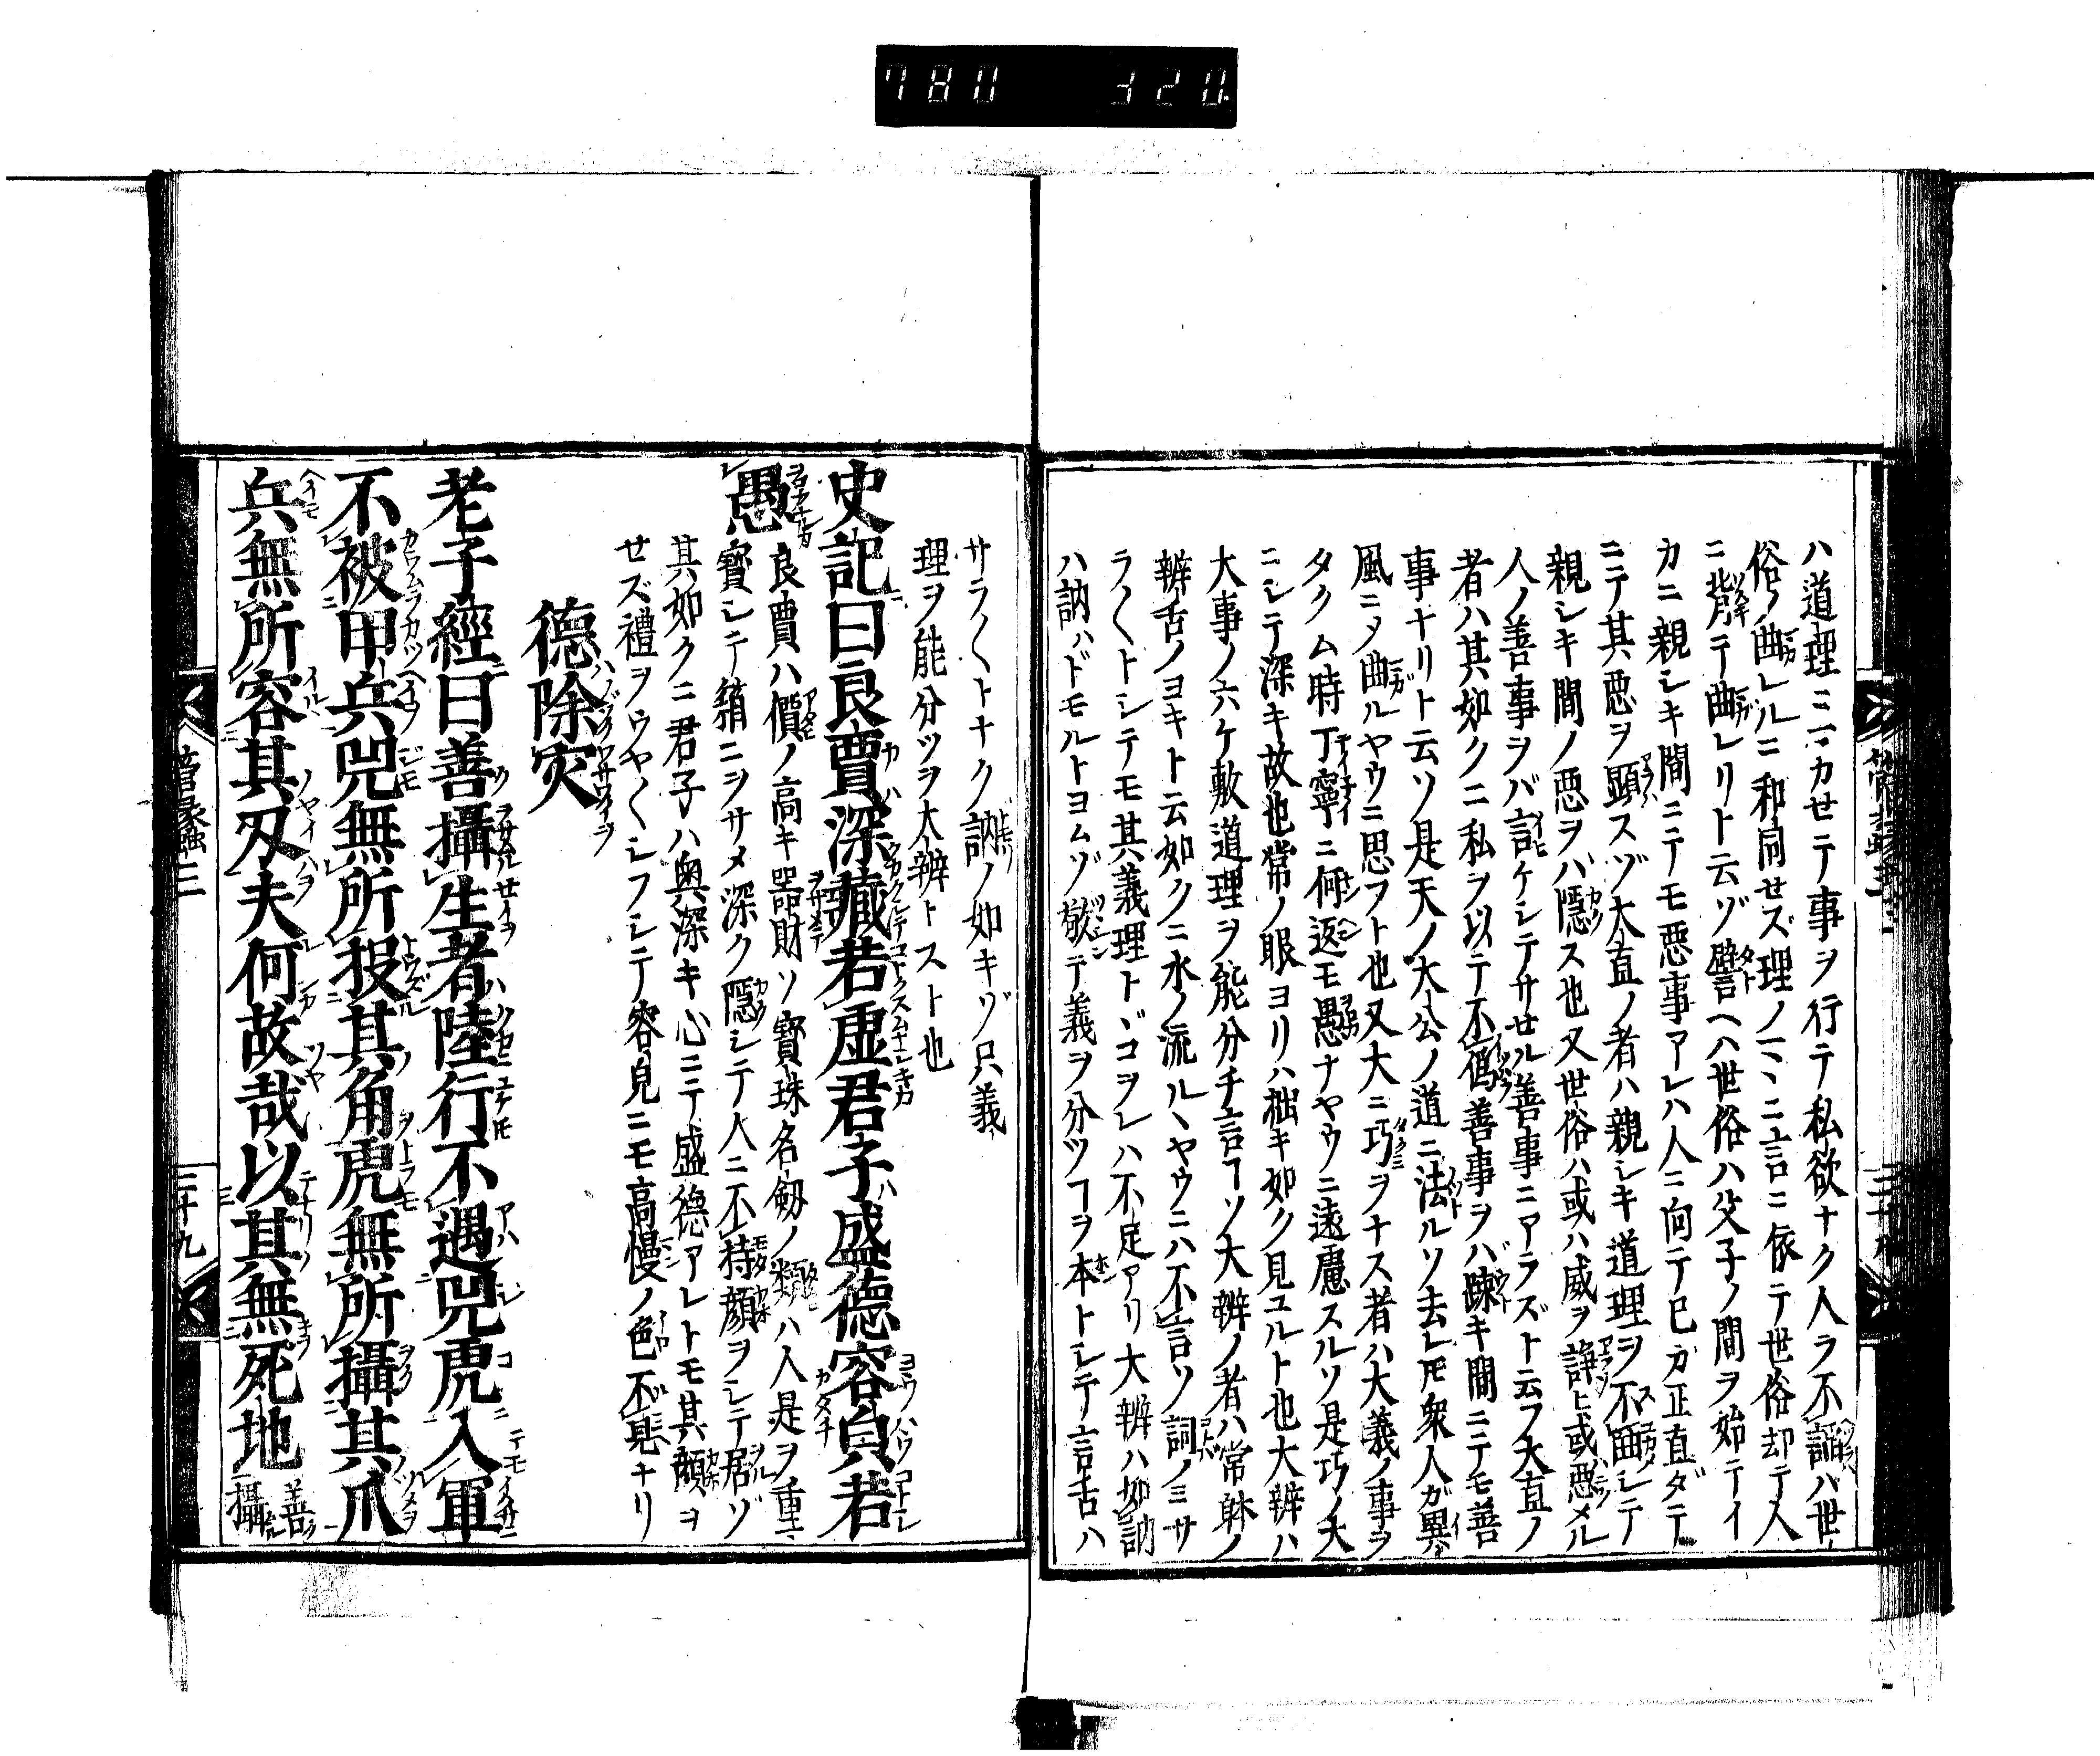 780 320
ハ道理ニマカせテ事ヲ行テ私欲ナク人ヲ不謟ハ世
俗ノ曲レルニ和同せズ理ノマヽニ言ニ依テ世俗却テ人
ニ背テ曲レリト云ゾ譬ヘハ世俗ハ父子ノ間ヲ始テイ
カニ親シキ間ニテモ悪事アレハ人ニ向テ已カ正直ダテ
ニテ其悪ヲ顕スゾ大直ノ者ハ親シキ道理ヲ不曲シテ
親シキ間ノ悪ヲハ隠ス也又世俗ハ或ハ威ヲ諍ヒ或悪メル
人ノ善事ヲバ言ケシテサせル善事ニアラズト云フ大直ノ
者ハ其如クニ私ヲ以テ不僞善事ヲハ踈キ間ニテモ善
事ナリト云ソ是天ノ大公ノ道ニ法ルソ去レ𪜈衆人ガ異
風ニメ曲ルヤウニ思フト也又大ニ巧ヲナス者ハ大義ノ事ヲ
タクム時丁寧ニ何返モ愚ナヤウニ遠慮スルソ是巧ノ大
ニシテ深キ故也常ノ眼ヨリハ拙キ如ク見ユルト也大辨ハ
大事ノ六ケ敷道理ヲ能分チ言フソ大辨ノ者ハ常躰ノ
辨舌ノヨキト云如クニ水ノ流ルヽヤウニハ不言ソ詞ノミサ
ラ〱トシテモ其義理トヾコヲレハ不足アリ大辨ハ如訥
ハ訥ハドモルトヨムゾ敬テ義ヲ分ツヿヲ本トシテ言舌ハ
サラ〱トナク訥ノ如キゾ只義
理ヲ能分ツヲ大辨トスト也
史記曰良賈深藏若虚君子盛德容貞若
愚
良賈ハ價ノ高キ器財ソ寳珠名劔ノ類ハ人是ヲ重
寳シテ箱ニヲサメ深ク隠シテ人ニ不持顔ヲシテ居ゾ
其如クニ君子ハ奥深キ心ニテ盛德アレトモ其顔ヲ
せズ禮ヲウヤ〱シフシテ容見ニモ高慢ノ色不見ナリ
德除灾
老子經曰善攝生者陸行不遇兕虎入軍
不被甲兵兕無所投其角虎無所攝其爪
兵無所容其刄夫何故哉以其無死地
善
攝
三
二十九